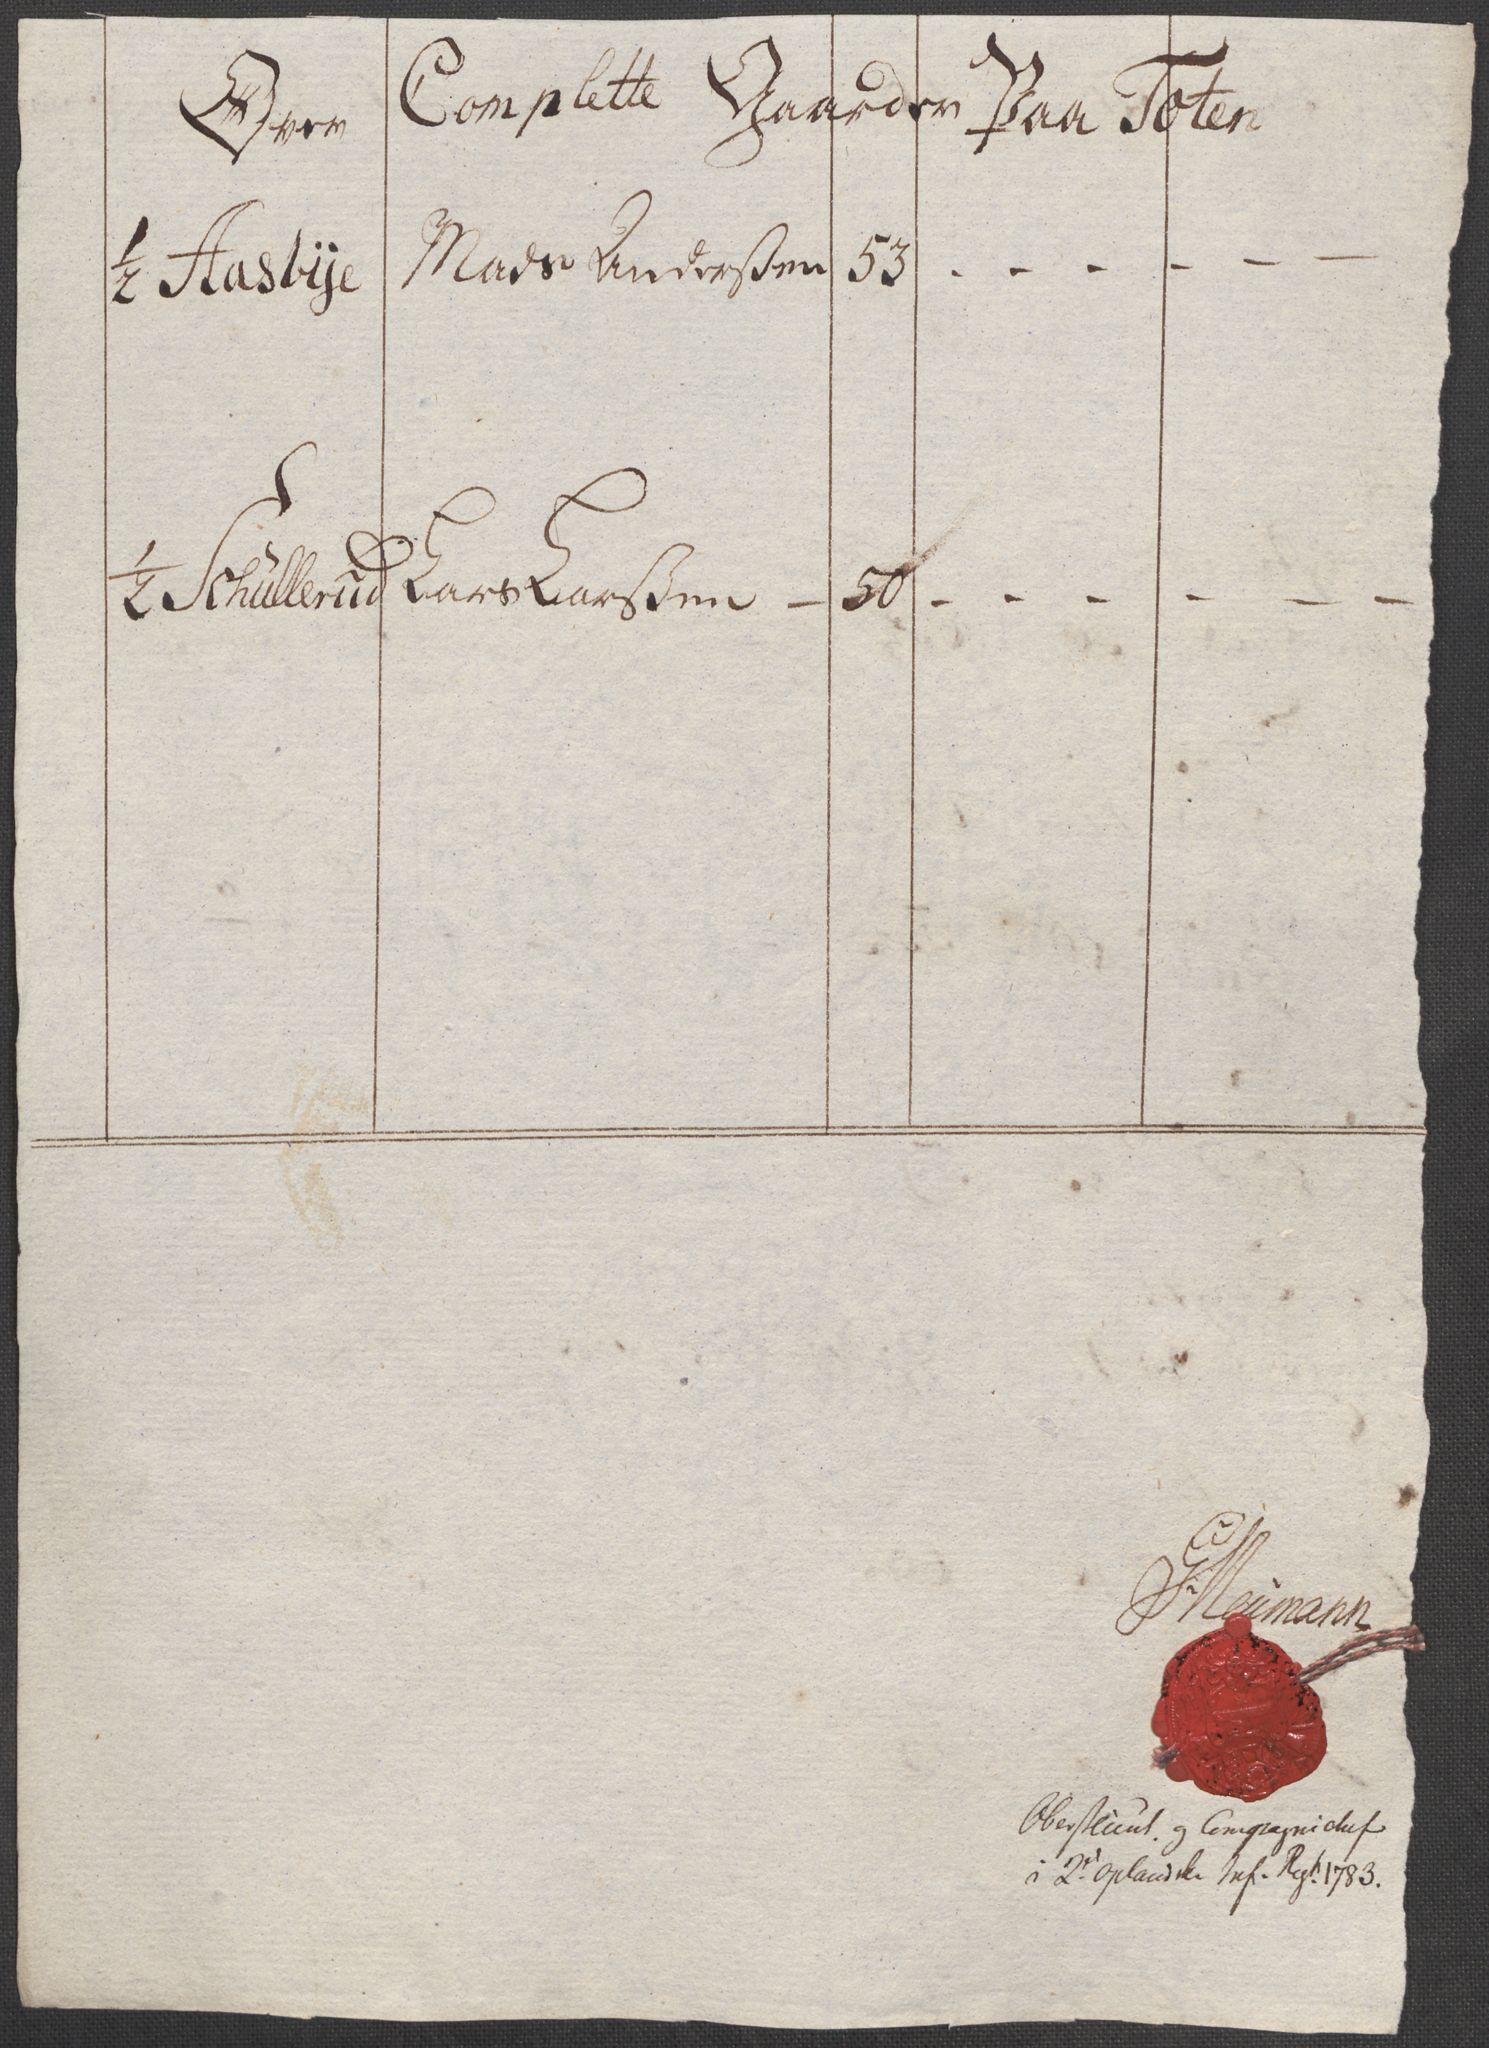 Over Complette Gaarder Paa Toten
1/2 Aasbÿe Mads Anderßen 53 - - - - - -
1/2 Schüllerud Lars Larßen - 50 - - - - - -
Neumann
Oberstlieut. og Compagnichef
i 2d oplandske Inf. Regt. 1783.